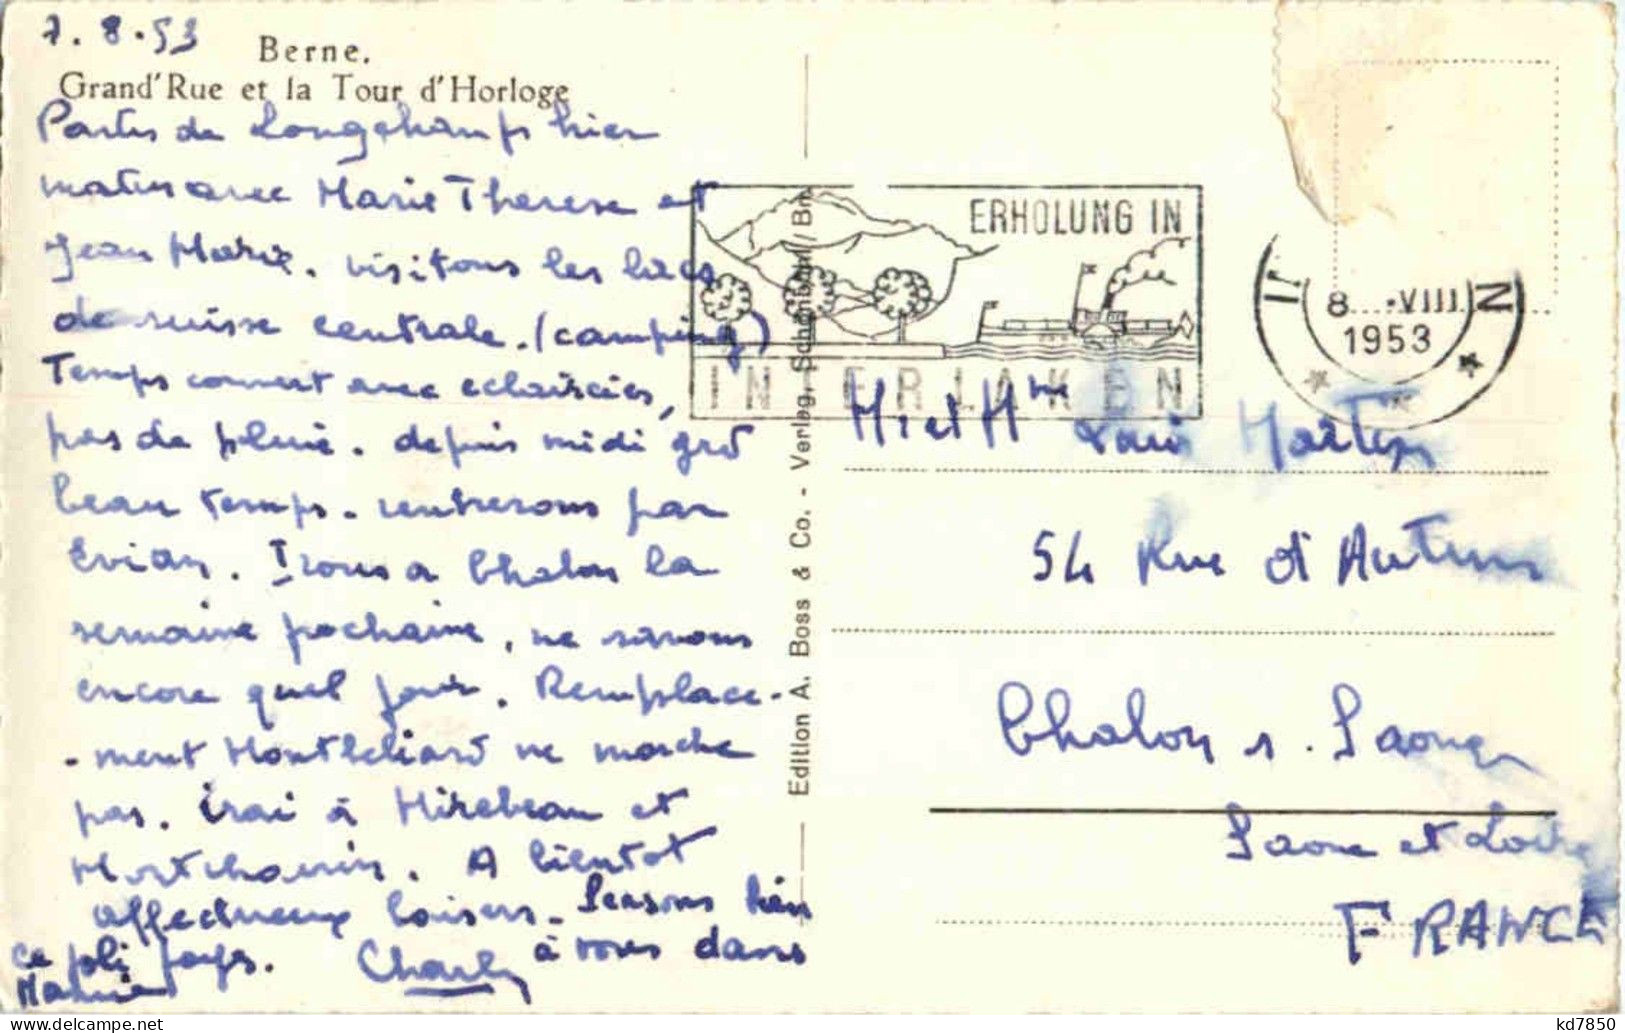 7.8.53
Berne.
Grand'Rue et la Tour d'Horloge
Partis de Longchamps hier
matin avec Marie Therese et
Jean Marie. visitons les lacs
de suisse centrale. (camping)
Temps couvert avec eclaircies,
pas de pluie. depuis midi grd
beau temps. rentrerons par
Evian. Irons a Chalon la
semaine prochaine, ne savons
encore quel jour. Remplace-
-ment Montbeliard ne marche
pas. irai à Mirebeau et
A bientot
affectueux baisers. Pensons bien
à vous dans
ce joli pays. Charly
Edition A. Boss & Co. - Verlag, Schönbühl / Bn.
ERHOLUNG IN
INTERLAKEN
8 -VIII
1953
M et Mme Louis Martin
54 Rue d'Autun
Chalon s. Saone
Saone et Loire
FRANCE
kd7850